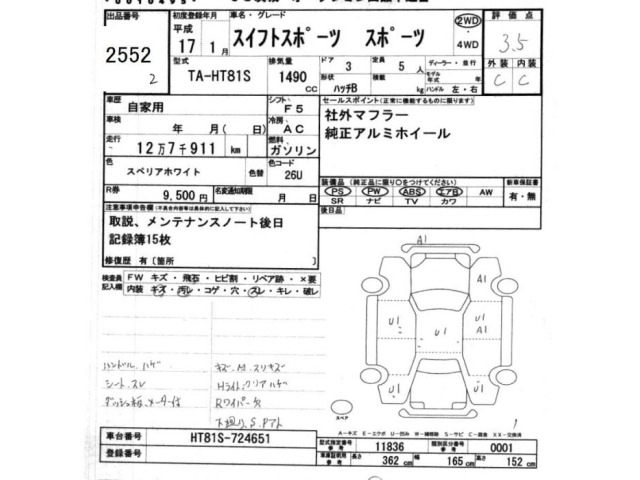 出品番号 初度登録年月 車名・グレード 評価点
2552
2
平成
17 1月
スイフトスポーツ スポーツ
2WD
・
4WD
3.5
型式 排気量 ドア 定員 ディーラー・並行 外装 内装
TA-HT81S 1490 cc
3 5人
モデル年式 年
形状 積載
ハッチB kg ハンドル 左・右
C C
車歴 シフト セールスポイント(正常に機能するものに限ります)
自家用 F5
社外マフラー
純正アルミホイール
車検 冷房
年 月(日) AC
走行 燃料
12万7千911 km ガソリン
色 色替 色コード
スペリアホワイト 26U
装備品(純正品に限り○をつけてください) 新車保証書
PS PW ABS エアB AW 有・無
SR ナビ TV カワ
R券 名変通知期限
9,500円 月 日
後日品
注意事項申告欄(不具合内容等は具体的に記入して下さい)
取説、メンテナンスノート後日
記録簿15枚
修復歴 有[箇所 ]
検査員記入欄
FW キズ・飛石・ヒビ割・リペア跡・×要
内装 キズ・汚レ・コゲ・穴・スレ・キレ・破レ
A1
A1
U1 U1 U1
A1
U1 U1
ハンドル.ハゲ
シート.スレ
キズ.M.スリキズ
Hライト.クリアハゲ
Rワイパー欠
下廻り.S.Pアト
スペア
1
A-キズ E-エクボ U-凹み W-補修跡 S-サビ C-腐食 XX-交換済
車台番号 HT81S-724651
登録番号
型式指定番号 参考 11836 類別区分番号 参考 0001
車庫証明用 参考 長さ 362 cm 幅 165 cm 高さ 152 cm